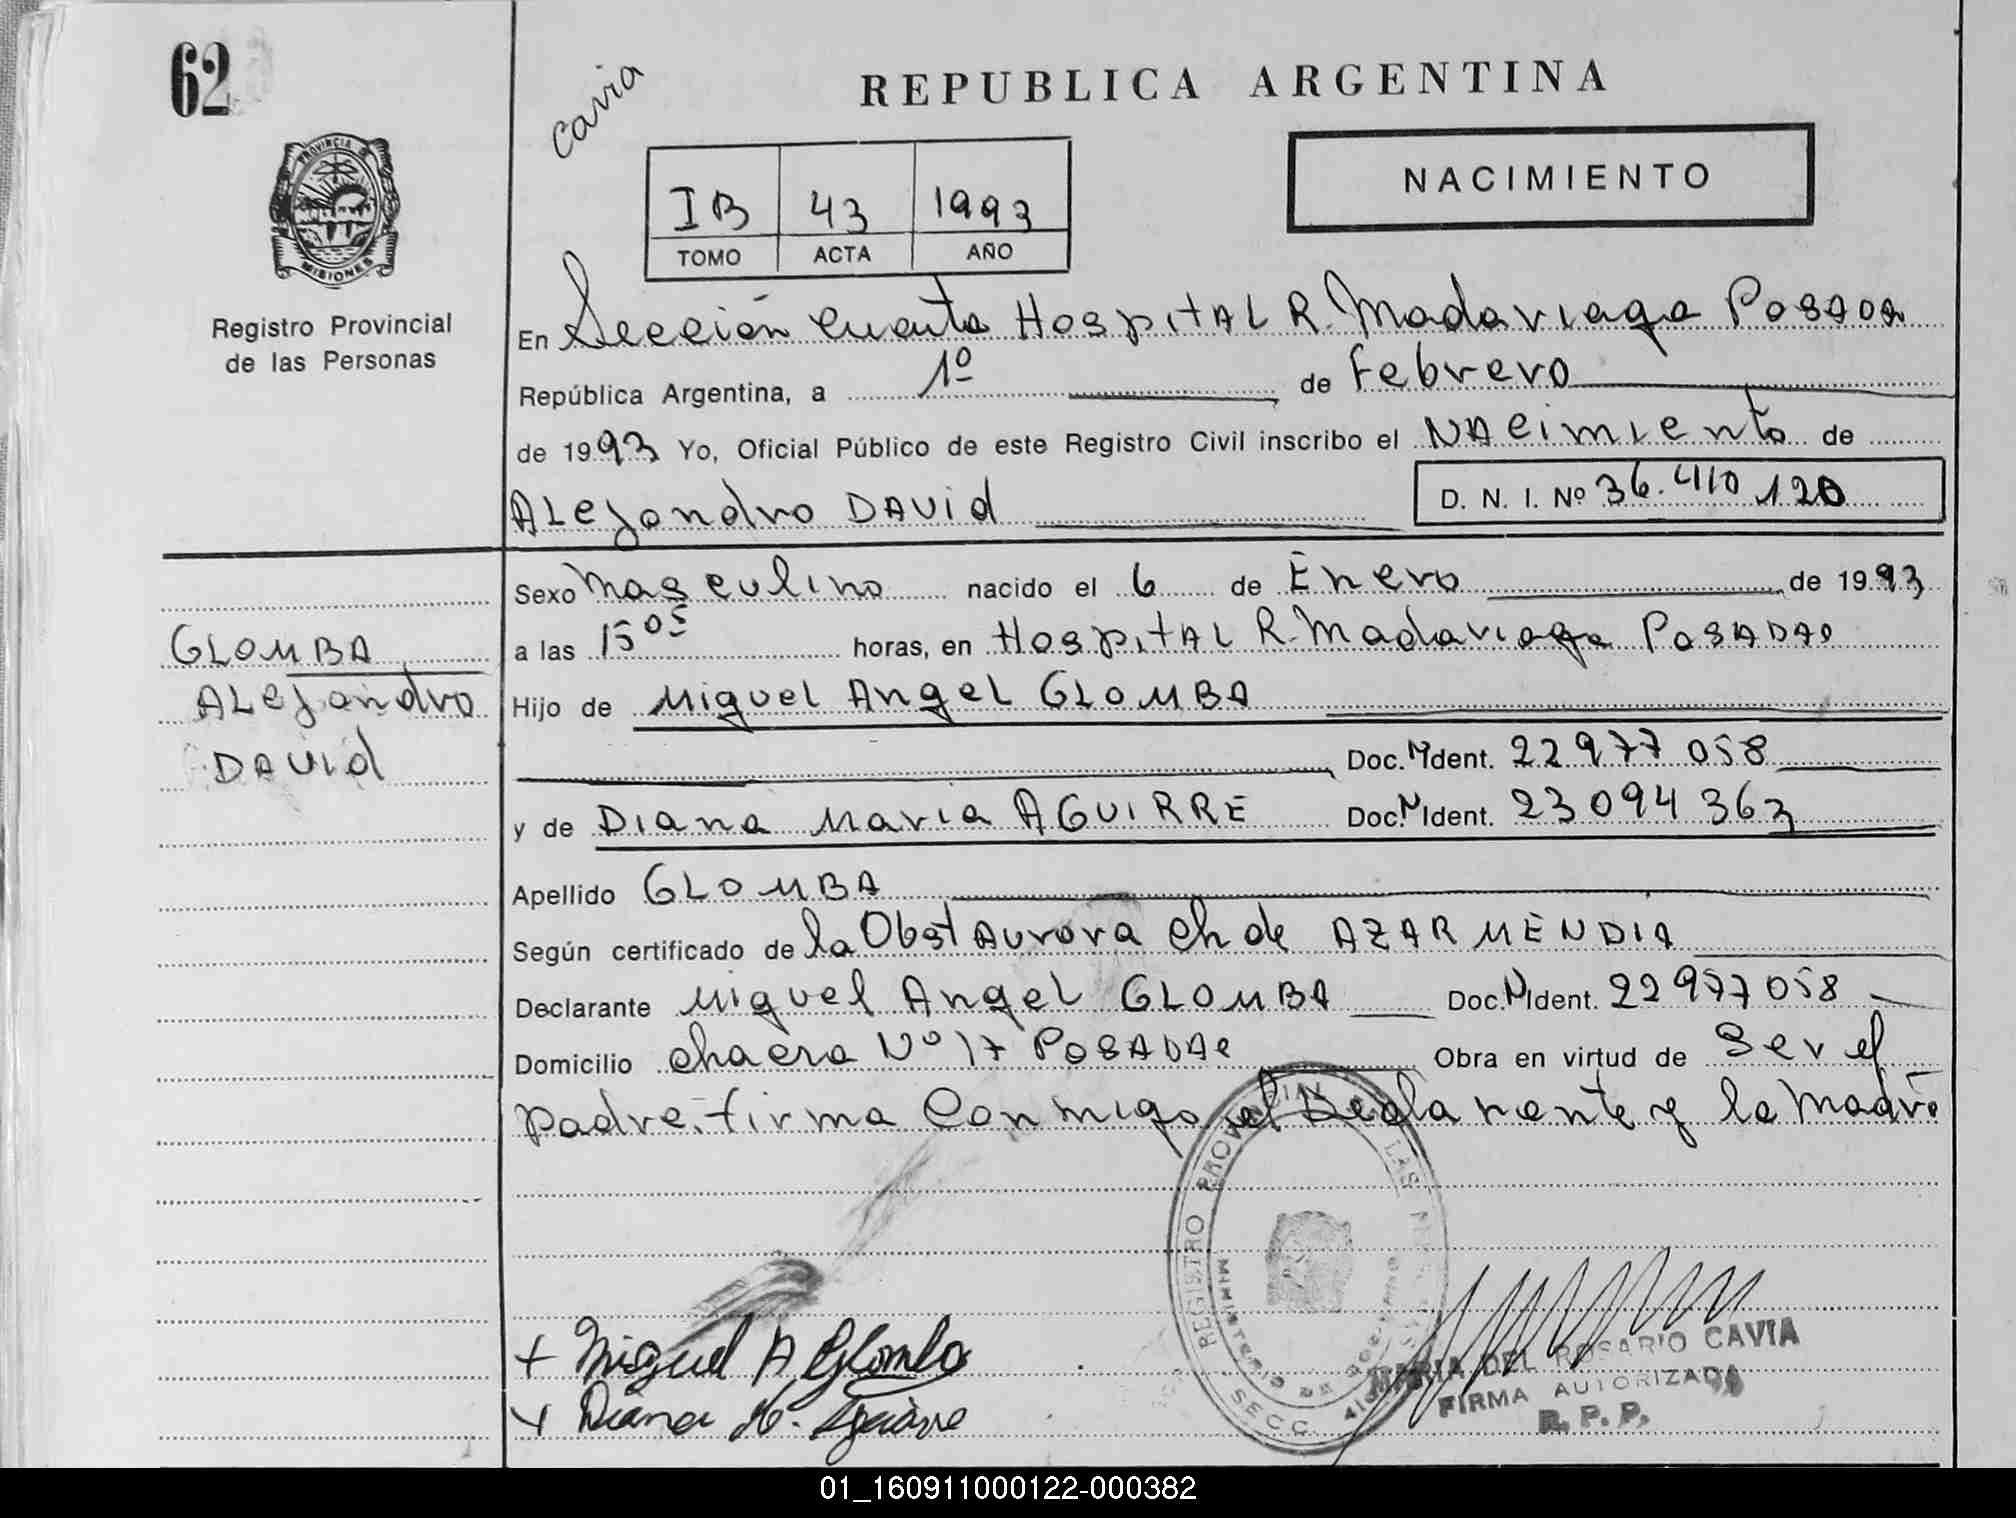 62
Cavia
REPUBLICA ARGENTINA
PROVINCIA D
MISIONES
Registro Provincial
de las Personas
IB 43 1993
TOMO ACTA AÑO
NACIMIENTO
En Sección cuarta Hospital R. Madariaga Posadas
República Argentina, a 1º de Febrero
de 1993 Yo, Oficial Público de este Registro Civil inscribo el Nacimiento de
Alejandro David D. N. I. Nº 36.410 120
Sexo Masculino nacido el 6 de Enero de 1993
GLOMBA
Alejandro
David
a las 15 05 horas, en Hospital R. Madariaga Posadas
Hijo de Miguel Angel GLOMBA
Doc. N Ident. 22 977 058
y de Diana Maria AGUIRRE Doc. N Ident. 23 094 363
Apellido GLOMBA
Según certificado de la Obst Aurora Ch de AZARMENDIA
Declarante Miguel Angel GLOMBA Doc. N Ident. 22 977 058
Domicilio chacra Nº 17 Posadas Obra en virtud de Ser el
padre. firma Conmigo el Declarante y la Madre
REGISTRO PROVINCIAL LAS
MINISTERIO DE GOBIERNO
SECC.
+ Miguel A Glomba
+ Diana M. Aguirre
MARIA DEL ROSARIO CAVIA
FIRMA AUTORIZADA
R. P. P.
01_160911000122-000382